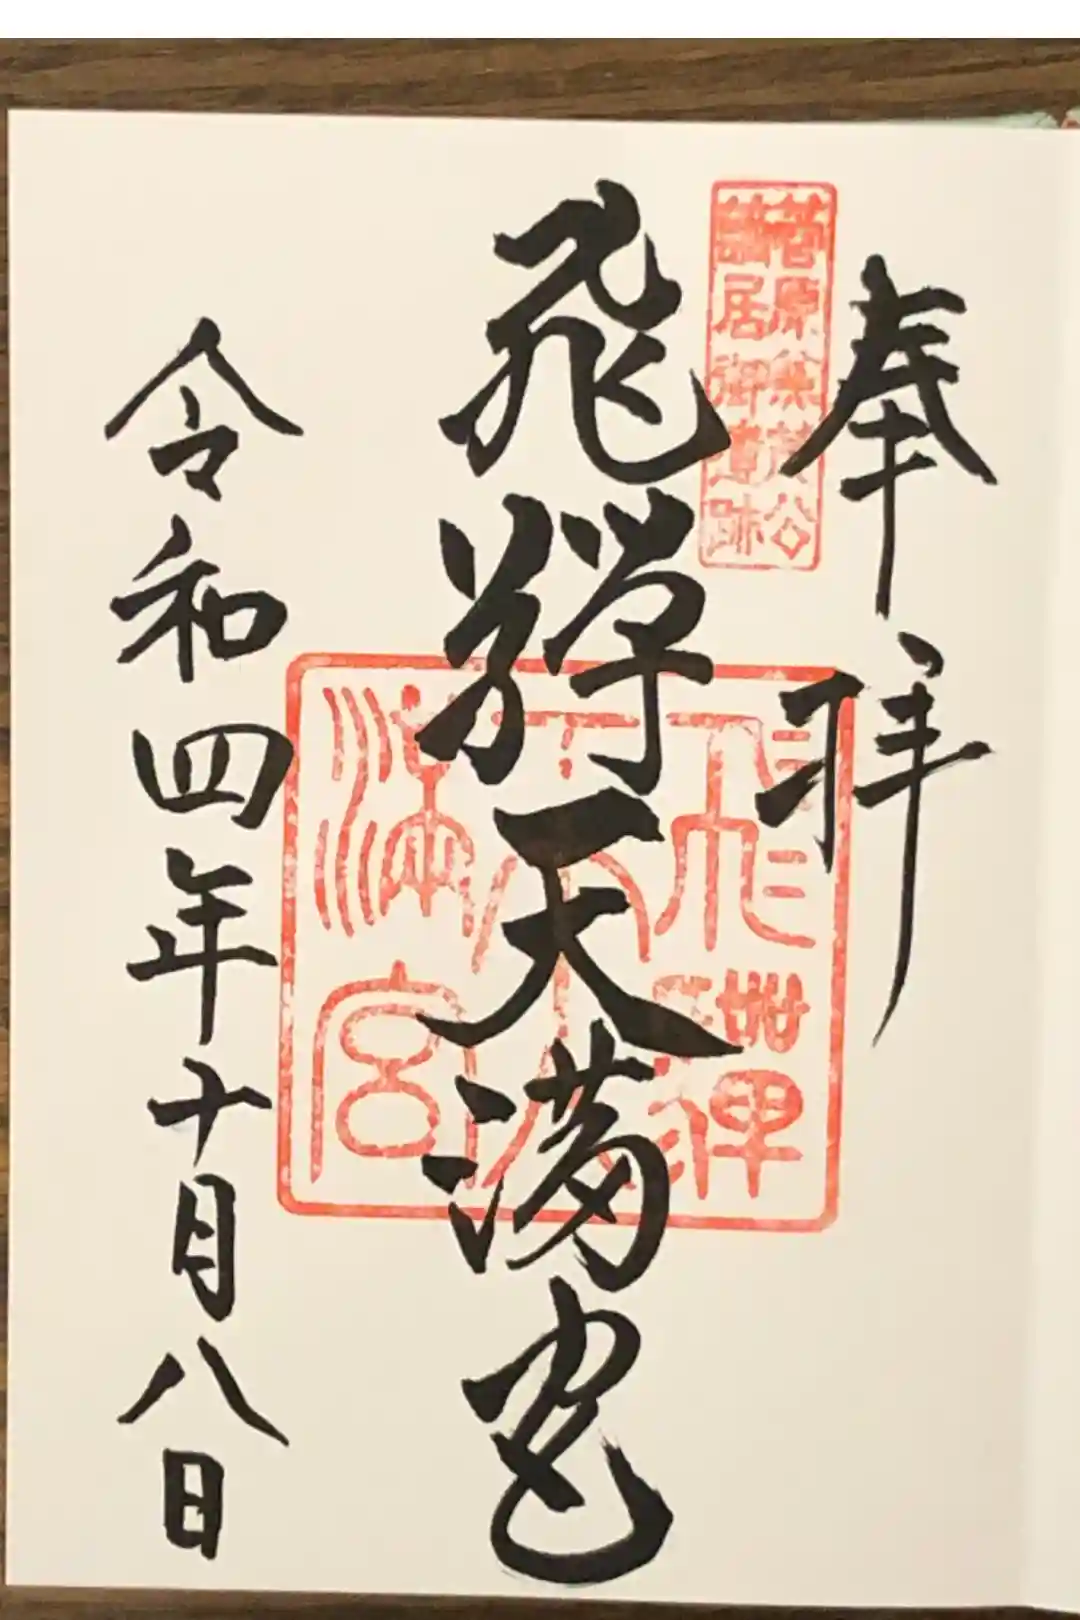 奉拝
菅原兼茂公
謫居御遺跡
飛騨天満宮
飛騨
天
満宮
令和四年十月八日